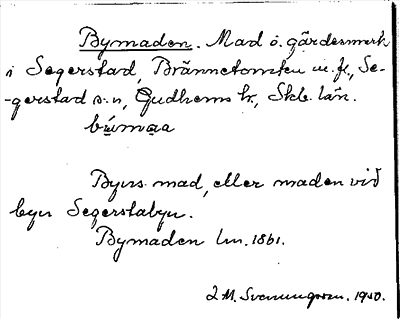 Bymaden. Mad o. gärdesmerk
i Segerstad, Brännetomten m. fl., Se-
-gerstad s:n, Gudhems hr., Skb. län.
býmaa
Byns mad, eller maden vid
byn Segerstabyn.
Bymaden Lm. 1861.
I. M. Svenungsson. 1930.